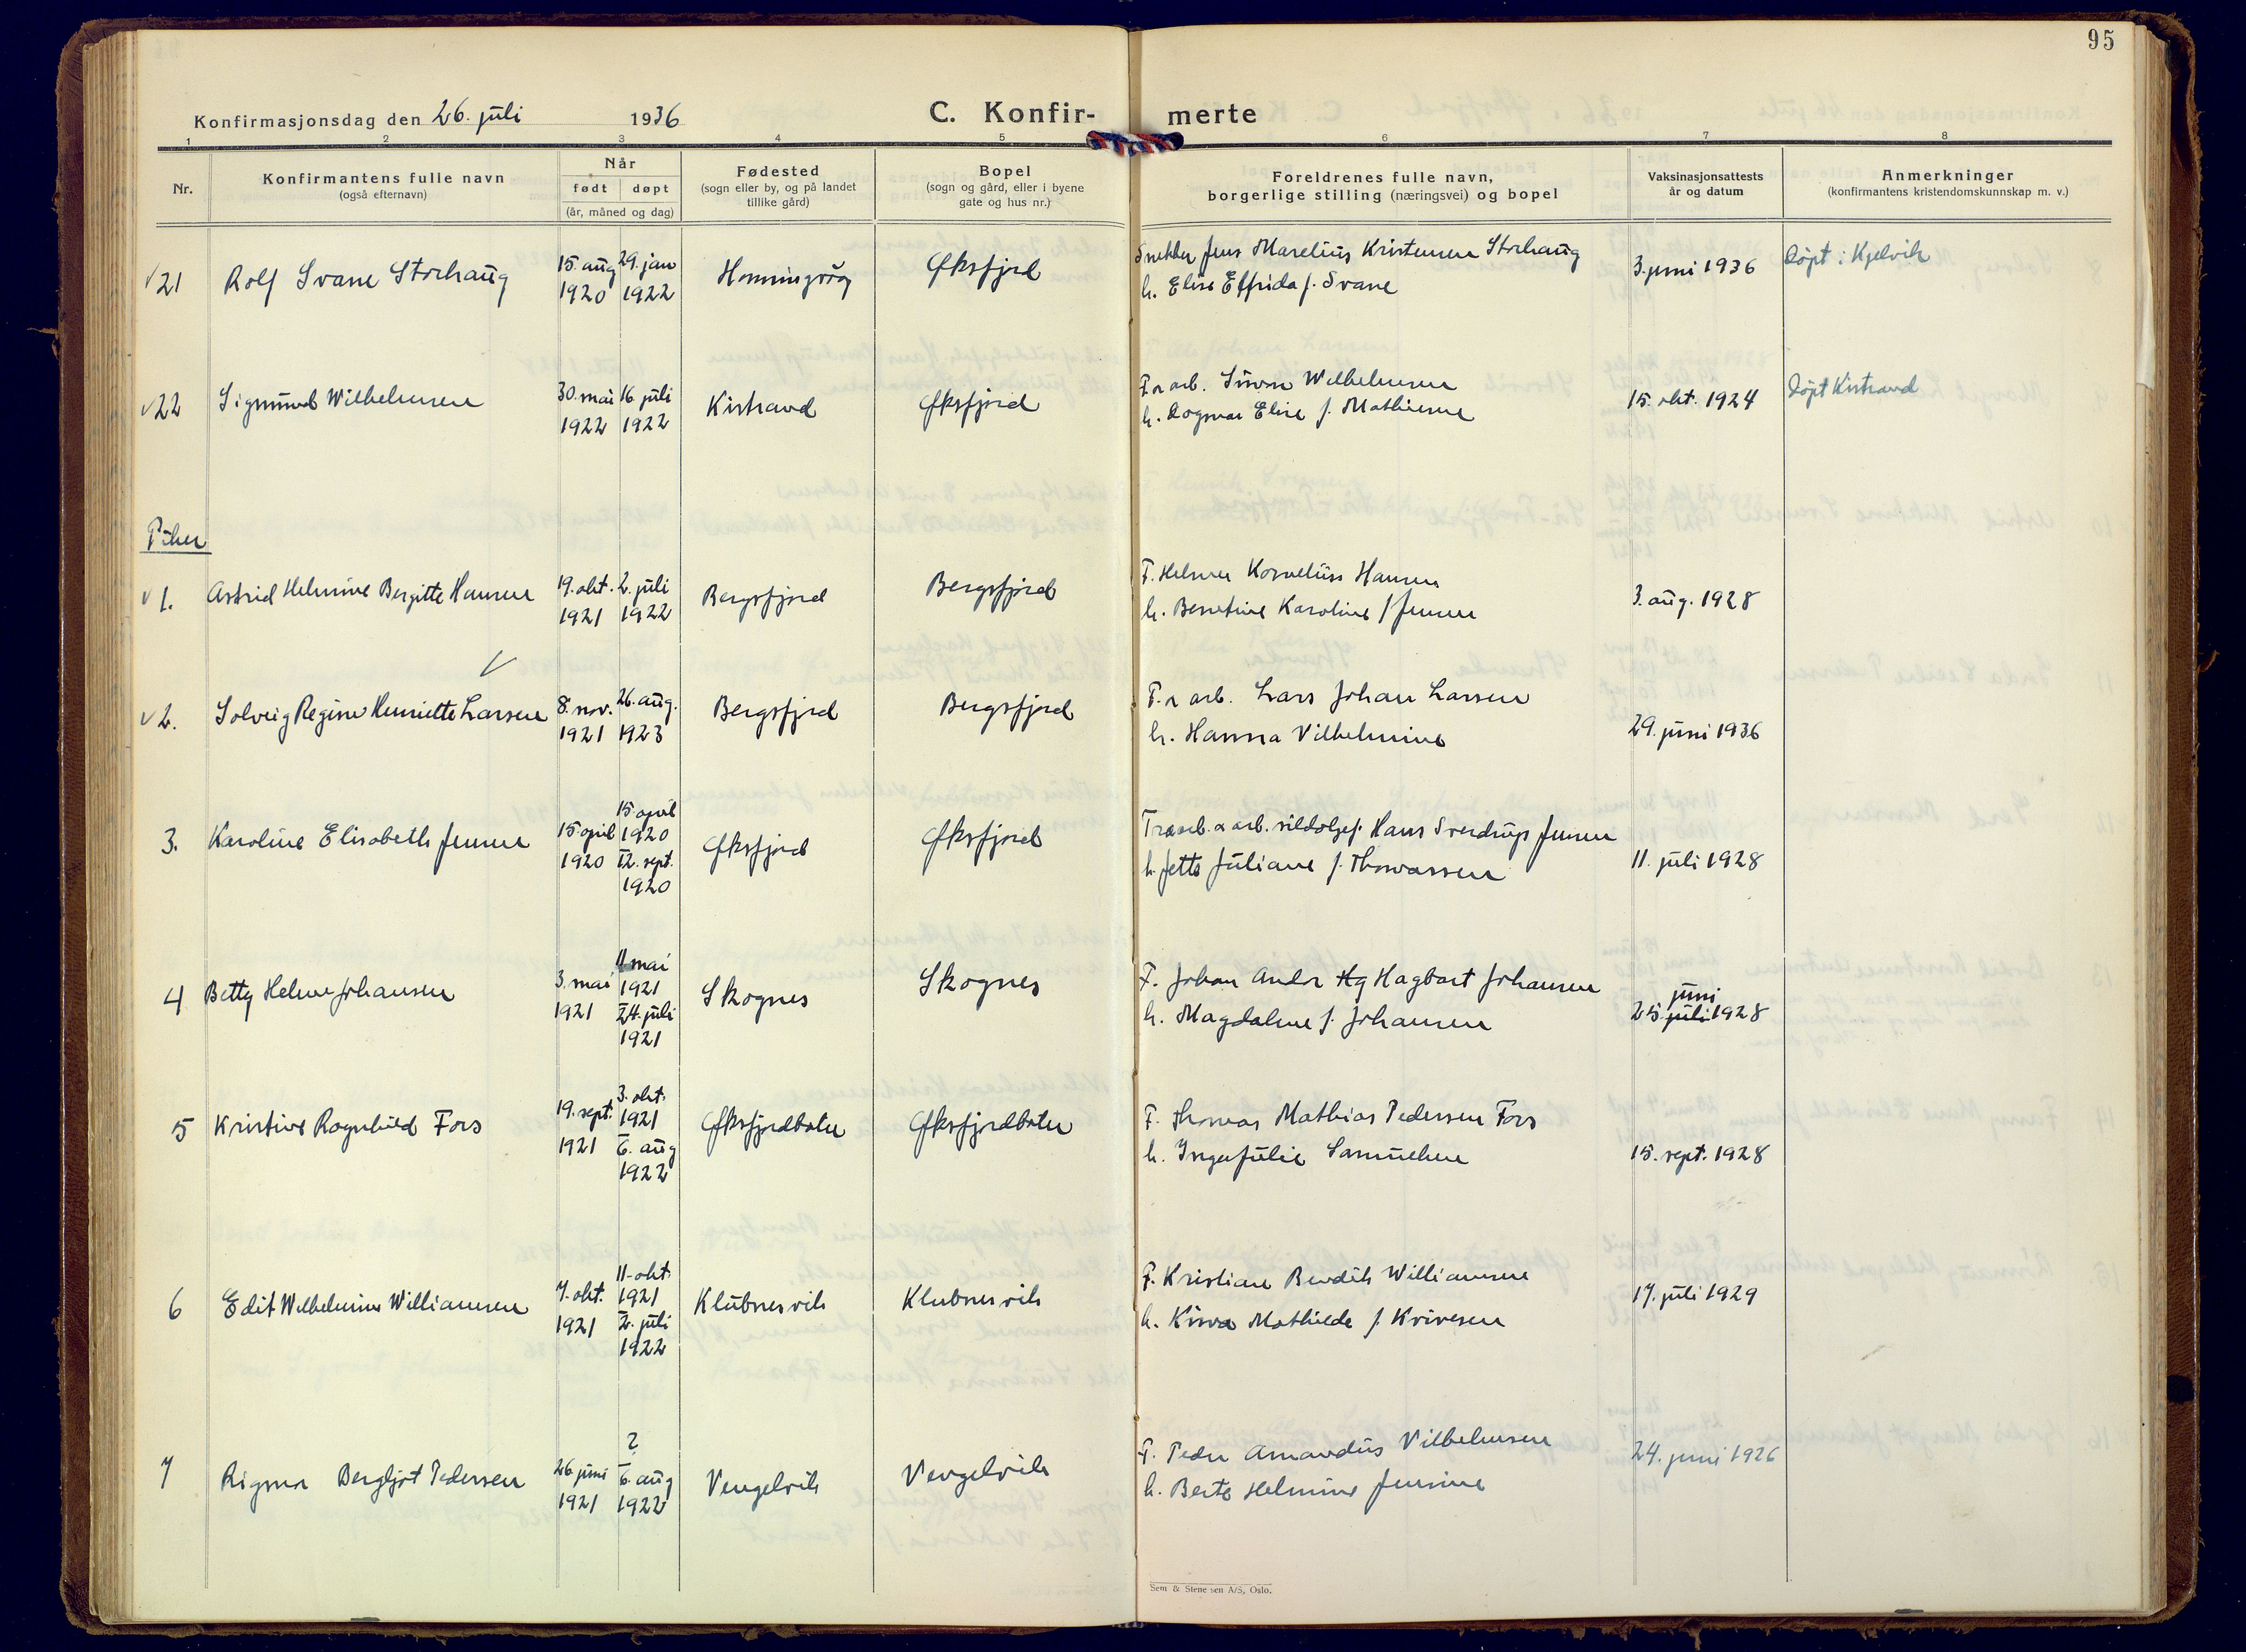 95
Konfirmasjonsdag den 26. juli 1936
C. Konfir- merte
1 2 3 4 5 6 7 8
Nr.
Konfirmantens fulle navn
(også efternavn)
Når
født døpt
(år, måned og dag)
Fødested
(sogn eller by, og på landet
tillike gård)
Bopel
(sogn og gård, eller i byene
gate og hus nr.)
Foreldrenes fulle navn,
borgerlige stilling (næringsvei) og bopel
Vaksinasjonsattests
år og datum
Anmerkninger
(konfirmantens kristendomskunnskap m. v.)
21 Rolf Svane Storhaug
15. aug 1920
29. jan 1922
Honningsvåg
Øksfjord
Snekker Jens Marelius Kristensen Storhaug
h. Elise Elfrida f. Svane
3. juni 1936
Døpt i Kjelvik
22 Sigmund Wilhelmsen
30. mai 1922
16 juli 1922
Kistrand
Øksfjord
F. & arb. Wilhelmsen
h. Dagmar Elise f. Mathisen
15. okt. 1924
Døpt Kistrand
Piker
1. Astrid Helmine Bergitte Hansen
19. okt. 1921
2. juli 1922
Bergsfjord
Bergsfjord
F. Helmer Kornelius Hansen
h. Karoline f Jensen
3. aug. 1928
2. Solveig Regine Henriette Larsen
8. nov. 1921
26. aug. 1923
Bergsfjord
Bergsfjord
F. & arb. Lars Johan Larsen
h. Hanna Vilhelmine
29. juni 1936
3. Karoline Elisabeth Jensen
15 april 1920
15. april
1920
12. sept.
1920
Øksfjord
Øksfjord
& arb. sildoljef. Hans Sverdrup Jensen
h. Jette Juliane f. Thomassen
11. juli 1928
4 Betty Helene Johansen
3. mai 1921
11 mai
1921
24. juli
1921
Skognes
Skognes
F. Johan Andor Hg Hagbart Johansen
h. Magdalene f. Johansen
juni
25. juli 1928
5 Kristine Ragnhild Fors
19. sept. 1921
3. okt.
1921
6. aug
1922
Øksfjordbotn
Øksfjordbotn
F. Thomas Mathias Pedersen Fors
h. Inga Julie Samuelsen
15. sept. 1928
6 Edit Wilhelmine Williamsen
7. okt. 1921
11. okt.
1921
2. juli
1922
Klubnesvik
Klubnesvik
F. Kristian Bendik Williamsen
h. Mathilde f.
17. juli 1929
7 Rigmor Bergljot Pedersen
26. juni 1921
?
6. aug
1922
Vengelvik
Vengelvik
F. Peder Amandus Vilhelmsen
h. Berte Helmine Jensine
24. juni 1926
Sem & Stenersen A/S, Oslo.